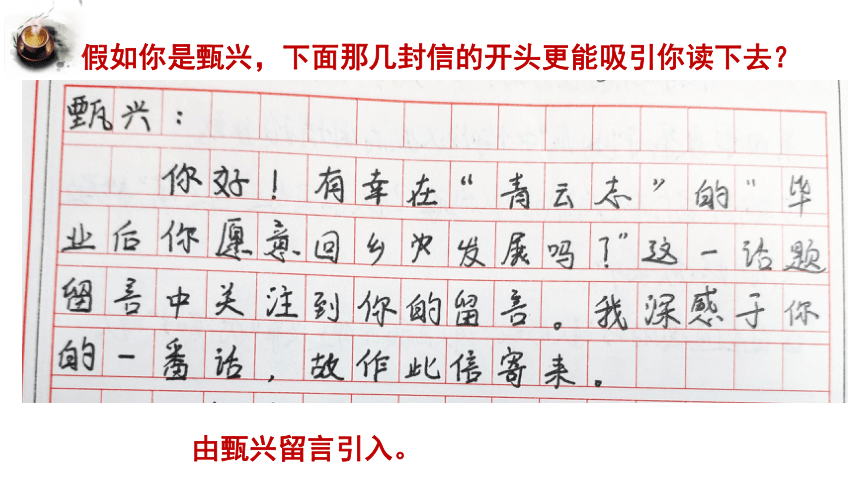 假如你是甄兴，下面那几封信的开头更能吸引你读下去？
甄兴：
你好！有幸在“青云志”的“毕
业后你愿意回乡发展吗？”这一话题
留言中关注到你的留言。我深感于你
的一番话，故作此信寄来。
由甄兴留言引入。